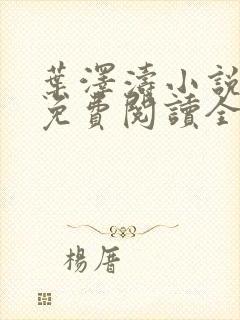 葉澤濤小說
免費閱讀全
楊厝